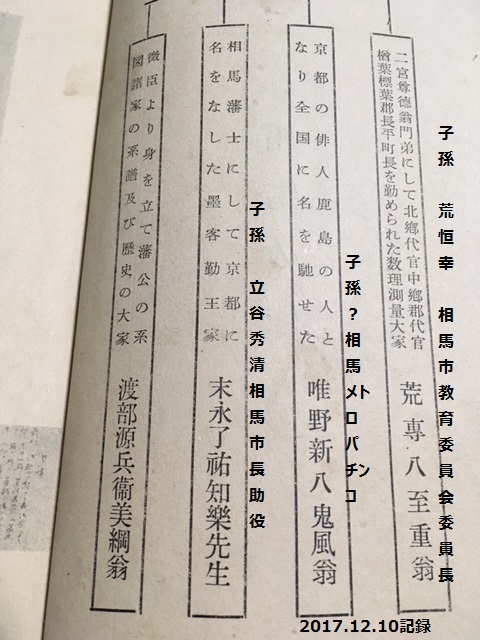 二宮尊德翁門弟にして北鄕代官中鄕郡代官
楢葉標葉郡長平町長を勤められた数理測量大家
荒專八至重翁
子孫 荒恒幸 相馬市教育委員会委員長
京都の俳人鹿島の人と
なり全国に名を馳せた
唯野新八鬼風翁
子孫?相馬メトロパチンコ
相馬藩士にして京都に
名をなした墨客勤王家
末永了祐知樂先生
子孫 立谷秀清相馬市長助役
微臣より身を立て藩公の系
図諸家の系譜及び歴史の大家
渡部源兵衞美綱翁
2017.12.10記録